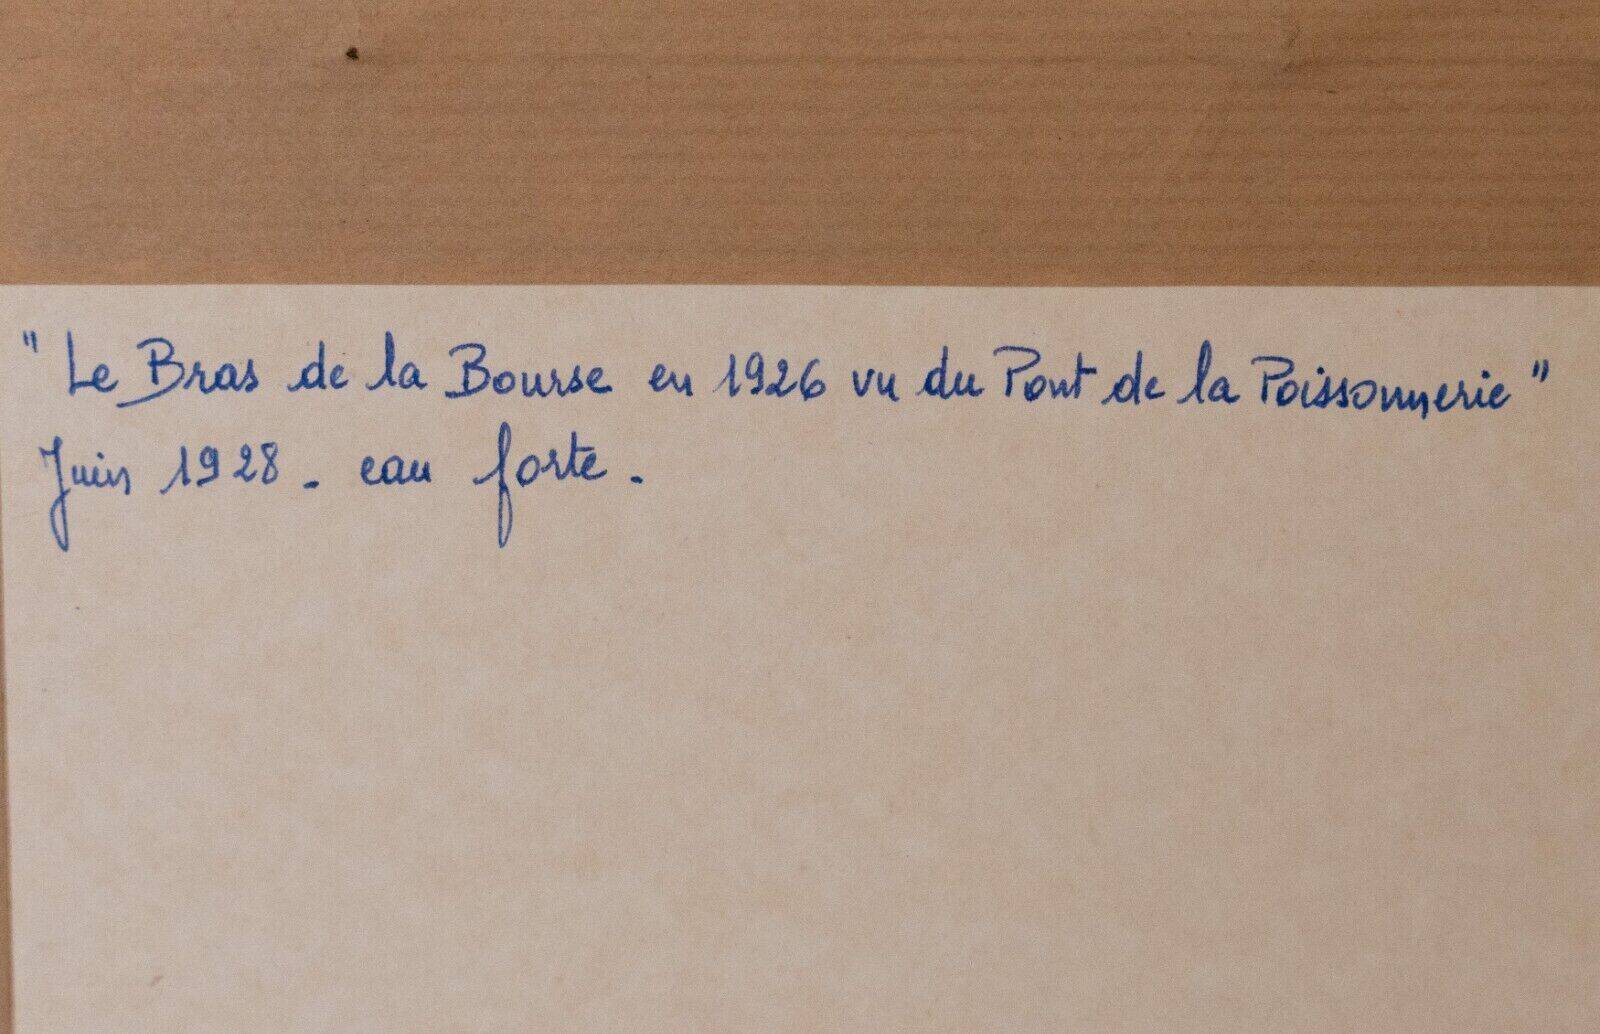 " Le Bras de la Bourse en 1926 vu du Pont de la Poissonnerie "
Juin 1928 . eau forte .